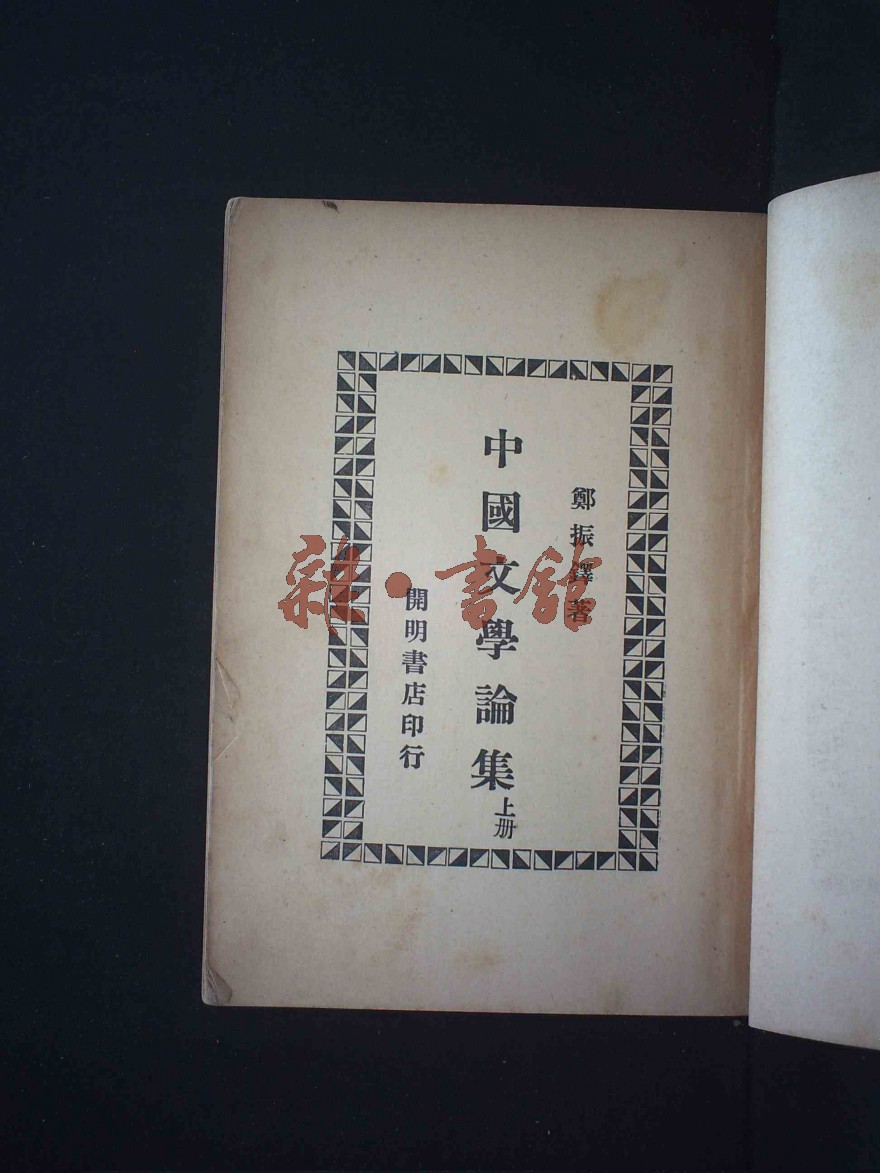 鄭振鐸著
中國文學論集上册
開明書店印行
雜·書館